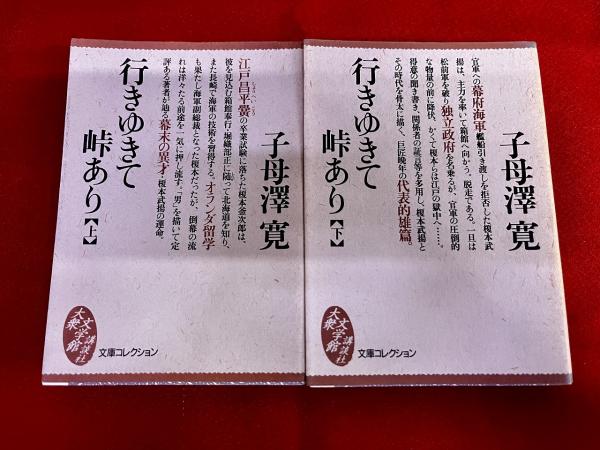 子母澤 寛
行きゆきて
峠あり【上】
江戸昌平黌の卒業試験に落ちた榎本釜次郎は、
彼を見込む箱館奉行・堀織部正に随って北海道を知り、
また長崎で海軍の技術を習得する。オランダ留学
も果たし海軍副総裁となった榎本だったが、倒幕の流
れは洋々たる前途を一気に押し流す。「男」を描いて定
評ある著者が辿る幕末の異才・榎本武揚の運命。
大衆
文学館
講談社
文庫コレクション
子母澤 寛
行きゆきて
峠あり【下】
官軍への幕府海軍艦船引き渡しを拒否した榎本武
揚は、主力を率いて箱館へ向かう。脱走である。一旦は
松前軍を破り独立政府を名乗るが、官軍の圧倒的
な物量の前に降伏、かくて榎本らは江戸の獄中へ……。
得意の聞き書き、関係者の証言等を多用し、榎本武揚と
その時代を骨太に描く、巨匠晩年の代表的雄篇。
大衆
文学館
講談社
文庫コレクション